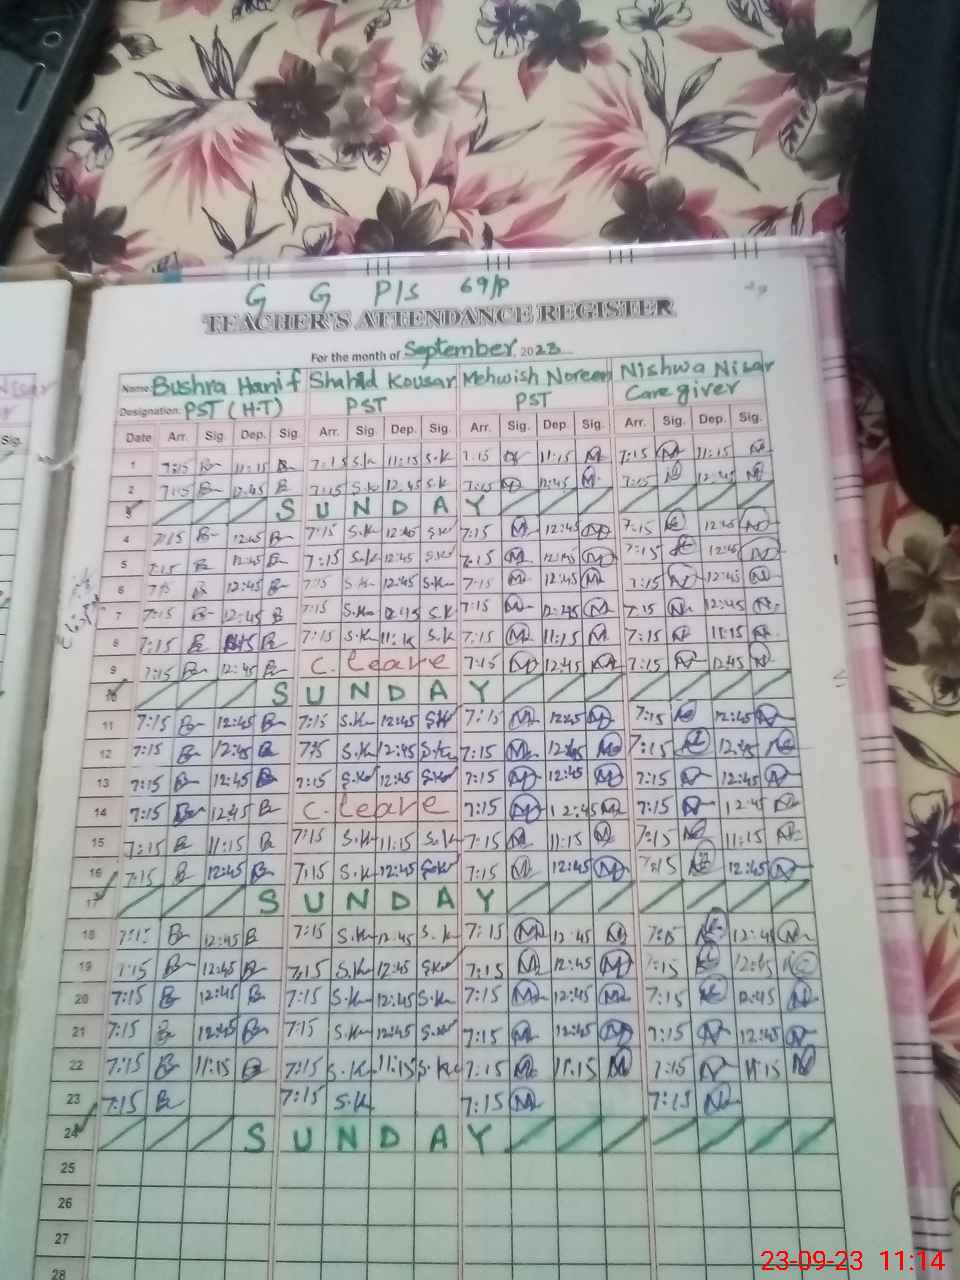 G G P/S 69/P
TEACHER'S ATTENDANCE REGISTER
For the month of September, 2023
Name: Bushra Hanif Shahid Kousar Mehwish Noreen Nishwa Nisar
Designation: PST (H-T) PST PST Care giver
Date Arr. Sig. Dep. Sig. Arr. Sig. Dep. Sig. Arr. Sig. Dep. Sig. Arr. Sig. Dep. Sig.
1 7:15 B 11:15 B 7:15 S.K 11:15 S.K 7:15 11:15 M 7:15 N 11:15 N
2 7:15 B 12:45 B 7:15 S.K 12:45 S.K 7:15 M 12:45 M 7:15 N 12:45 N
3 SUNDAY
4 7:15 B 12:45 B 7:15 S.K 12:45 S.K 7:15 M 12:45 M 7:15 12:45 N
5 7:15 B 12:45 B 7:15 S.K 12:45 S.K 7:15 M 12:45 M 7:15 12:45 N
6 7:15 B 12:45 B 7:15 S.K 12:45 S.K 7:15 M 12:45 M 7:15 N 12:45 N
7 7:15 B 12:45 B 7:15 S.K 12:45 S.K 7:15 M 12:45 M 7:15 N 12:45 N
8 7:15 B B 7:15 S.K 11:15 S.K 7:15 M 11:15 M 7:15 N 11:15 N
9 7:15 B 12:45 B C. Leave 7:15 M 12:45 M 7:15 N 12:45 N
10 SUNDAY
11 7:15 B 12:45 B 7:15 S.K 12:45 S.K 7:15 M 12:45 M 7:15 N 12:45 N
12 7:15 B 12:45 B 7:15 S.K 12:45 S.K 7:15 M 12:45 M 7:15 N 12:45 N
13 7:15 B 12:45 B 7:15 S.K 12:45 S.K 7:15 M 12:45 M 7:15 N 12:45 N
14 7:15 B 12:45 B C. Leave 7:15 M 12:45 M 7:15 N 12:45 N
15 7:15 B 11:15 B 7:15 S.K 11:15 S.K 7:15 M 11:15 M 7:15 N 11:15 N
16 7:15 B 12:45 B 7:15 S.K 12:45 S.K 7:15 M 12:45 M 7:15 N 12:45 N
17 SUNDAY
18 B 12:45 B 7:15 S.K 12:45 S.K 7:15 M 12:45 M 7:15 N 12:45 N
19 7:15 B 12:45 B 7:15 S.K 12:45 S.K 7:15 M 12:45 M 7:15 N 12:45 N
20 7:15 B 12:45 B 7:15 S.K 12:45 S.K 7:15 M 12:45 M 7:15 N 12:45 N
21 7:15 B 12:45 B 7:15 S.K 12:45 S.K 7:15 M 12:45 M 7:15 N 12:45 N
22 7:15 B 11:15 B 7:15 S.K 11:15 S.K 7:15 M 11:15 M 7:15 N 11:15 N
23 7:15 B 7:15 S.K 7:15 M 7:15 N
24 SUNDAY
25
26
27
28
Sig.
23-09-23 11:14